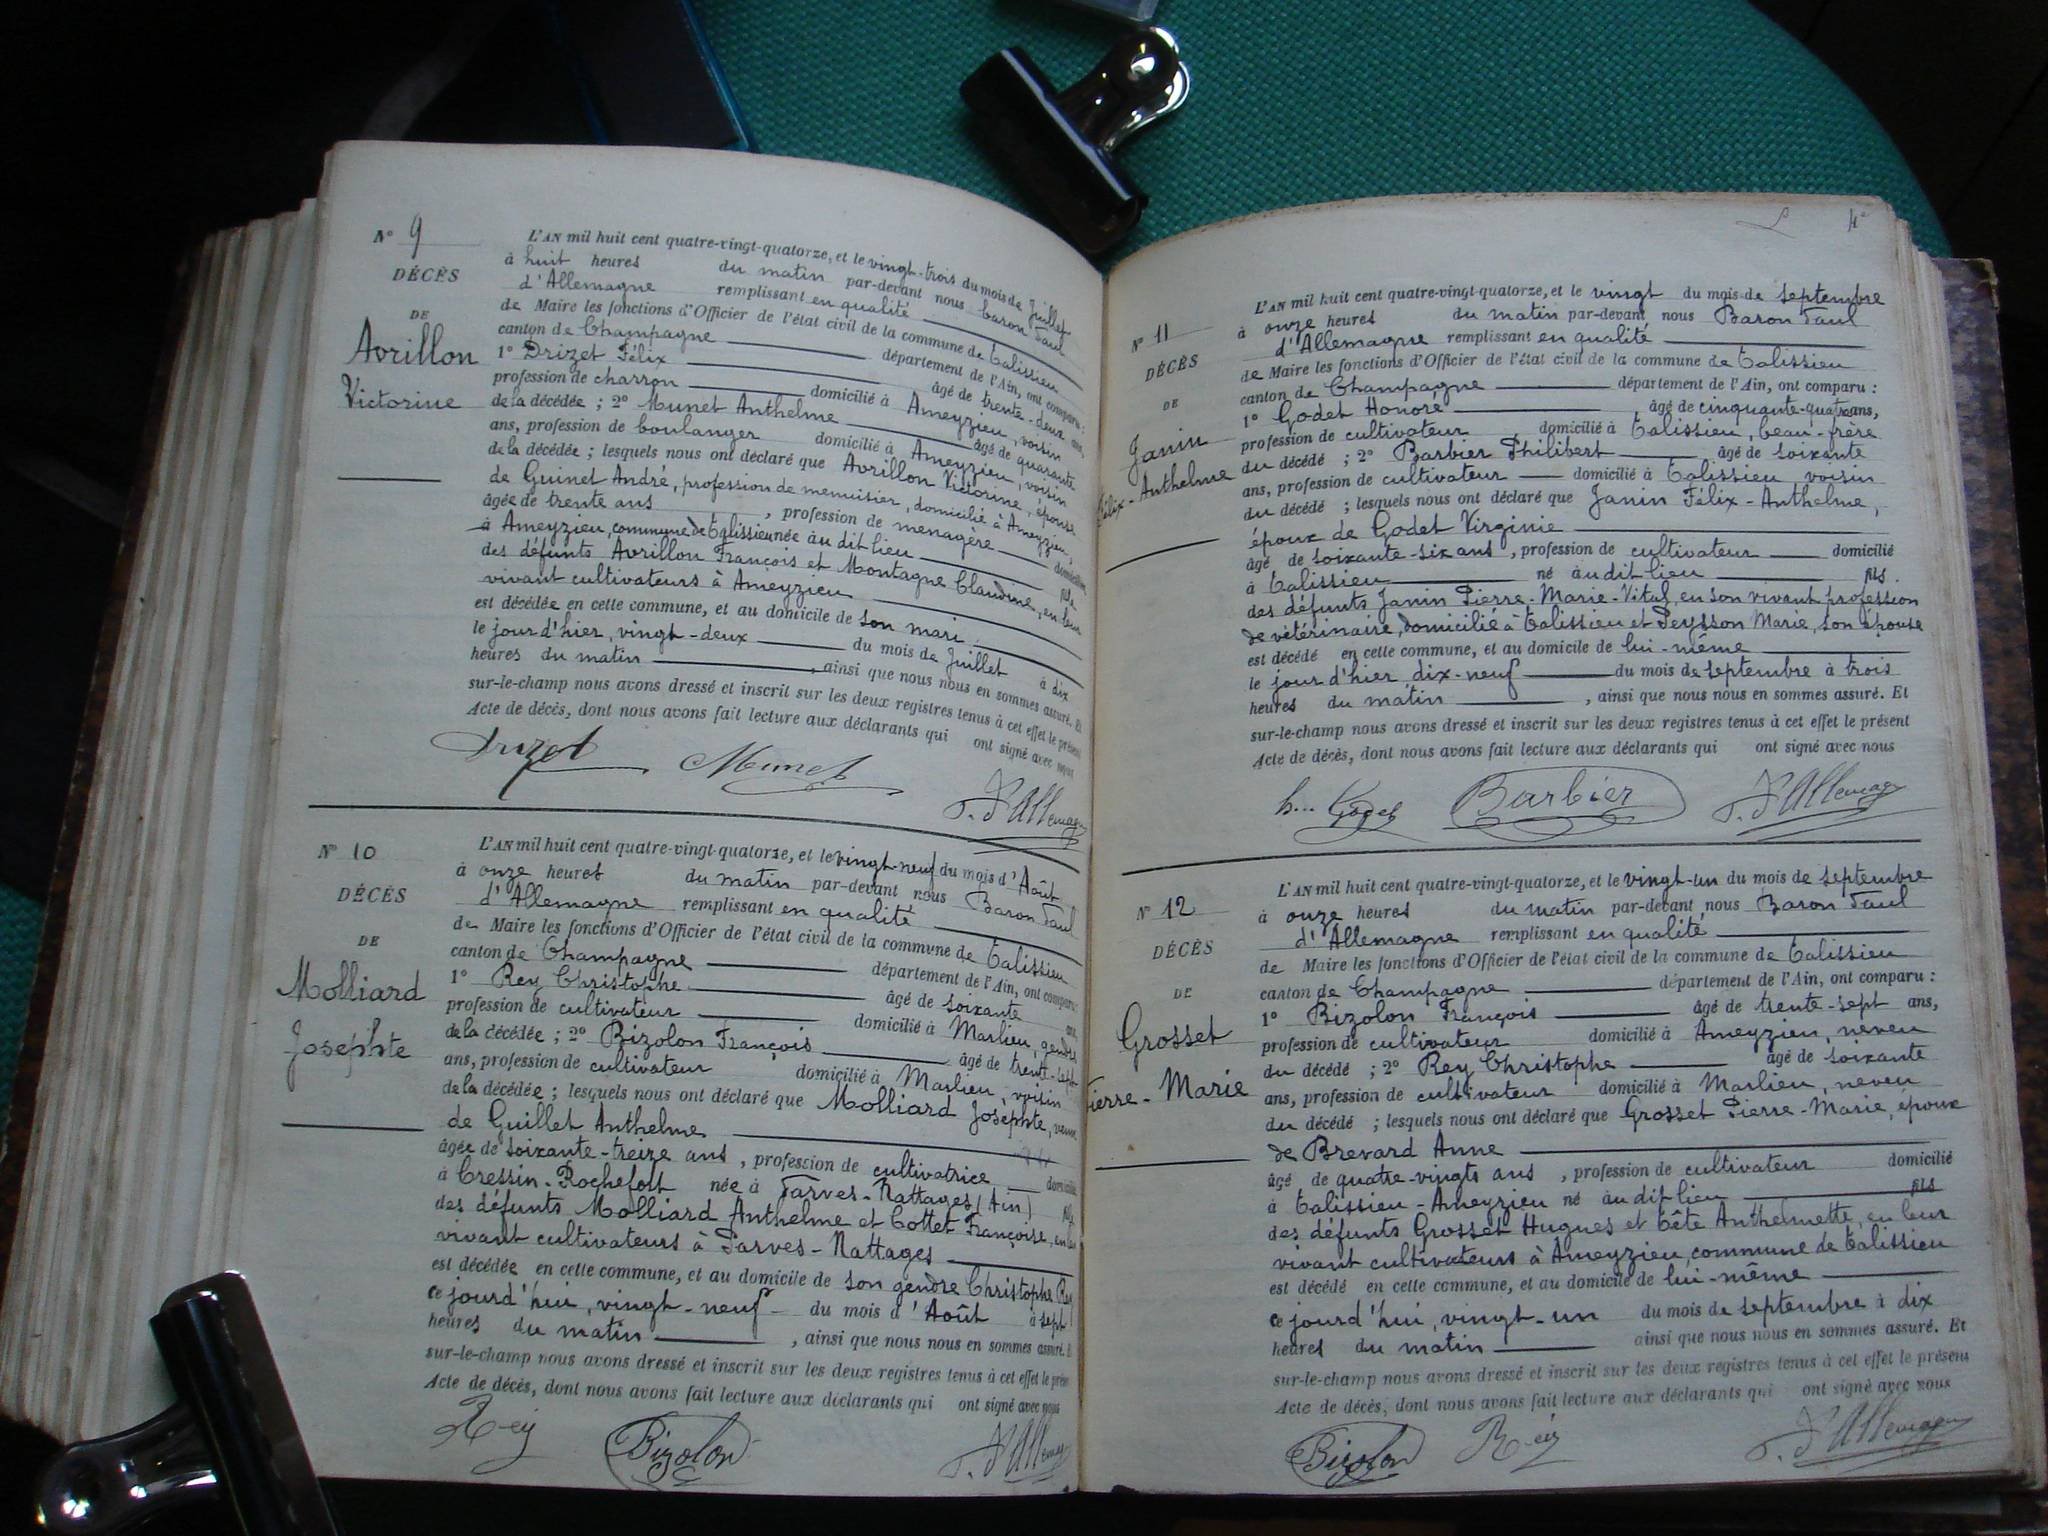 N° 9
DÉCÈS
DE
Avrillon
Victorine
L'AN mil huit cent quatre-vingt-quatorze, et le vingt-trois du mois de Juillet
à huit heures du matin par-devant nous baron Paul
d'Allemagne remplissant en qualité
de Maire les fonctions d'Officier de l'état civil de la commune de Talissieu
canton de Champagne département de l'Ain, ont comparu :
1° Drizet Félix âgé de trente-deux ans,
profession de charron domicilié à Ameyzieu, voisin
de la décédée ; 2° Munet Anthelme âgé de quarante
ans, profession de boulanger domicilié à Ameyzieu, voisin
de la décédée ; lesquels nous ont déclaré que Avrillon Victorine, épouse
de Guinet André, profession de menuisier, domicilié à Ameyzieu,
âgée de trente ans , profession de menagère domiciliée
à Ameyzieu, commune de Talissieu née au dit lieu fille
des défunts Avrillon François et Montagne Claudine, en leur
vivant cultivateurs à Ameyzieu
est décédée en cette commune, et au domicile de son mari
le jour d'hier, vingt-deux du mois de Juillet à dix
heures du matin , ainsi que nous nous en sommes assuré. Et
sur-le-champ nous avons dressé et inscrit sur les deux registres tenus à cet effet le présent
Acte de décès, dont nous avons fait lecture aux déclarants qui ont signé avec nous
Drizet Munet
P. d'Allemagne
N° 10
DÉCÈS
DE
Molliard
Josephte
L'AN mil huit cent quatre-vingt-quatorze, et le vingt-neuf du mois d'Août
à onze heures du matin par-devant nous Baron Paul
d'Allemagne remplissant en qualité
de Maire les fonctions d'Officier de l'état civil de la commune de Talissieu
canton de Champagne département de l'Ain, ont comparu :
1° Rey Christophe âgé de soixante ans
profession de cultivateur domicilié à Marlieu, gendre
de la décédée ; 2° Bizolon François âgé de trente-sept
ans, profession de cultivateur domicilié à Marlieu, voisin
de la décédée ; lesquels nous ont déclaré que Molliard Josephte, veuve
de Guillet Anthelme
âgée de soixante-treize ans , profession de cultivatrice domiciliée
à Cressin-Rochefort née à Parves-Nattages (Ain) fille
des défunts Molliard Anthelme et Cottet Françoise, en leur
vivant cultivateurs à Parves-Nattages
est décédée en cette commune, et au domicile de son gendre Christophe Rey
ce jourd'hui, vingt-neuf du mois d'Août à sept
heures du matin , ainsi que nous nous en sommes assuré. Et
sur-le-champ nous avons dressé et inscrit sur les deux registres tenus à cet effet le présent
Acte de décès, dont nous avons fait lecture aux déclarants qui ont signé avec nous
Rey Bizolon P. d'Allemagne
N° 11
DÉCÈS
DE
Janin
Félix-Anthelme
L'AN mil huit cent quatre-vingt-quatorze, et le vingt du mois de septembre
à onze heures du matin par-devant nous Baron Paul
d'Allemagne remplissant en qualité
de Maire les fonctions d'Officier de l'état civil de la commune de Talissieu
canton de Champagne département de l'Ain, ont comparu :
1° Godet Honoré âgé de cinquante-quatre ans,
profession de cultivateur domicilié à Talissieu, beau-frère
du décédé ; 2° Barbier Philibert âgé de soixante
ans, profession de cultivateur domicilié à Talissieu voisin
du décédé ; lesquels nous ont déclaré que Janin Félix-Anthelme,
époux de Godet Virginie
âgé de soixante-six ans , profession de cultivateur domicilié
à Talissieu né au dit lieu fils
des défunts Janin Pierre-Marie-Vital, en son vivant profession
de vétérinaire, domicilié à Talissieu et Peysson Marie, son épouse
est décédé en cette commune, et au domicile de lui-même
le jour d'hier dix-neuf du mois de septembre à trois
heures du matin , ainsi que nous nous en sommes assuré. Et
sur-le-champ nous avons dressé et inscrit sur les deux registres tenus à cet effet le présent
Acte de décès, dont nous avons fait lecture aux déclarants qui ont signé avec nous
h... Godet Barbier P. d'Allemagne
N° 12
DÉCÈS
DE
Grosset
Pierre-Marie
L'AN mil huit cent quatre-vingt-quatorze, et le vingt-un du mois de septembre
à onze heures du matin par-devant nous Baron Paul
d'Allemagne remplissant en qualité
de Maire les fonctions d'Officier de l'état civil de la commune de Talissieu
canton de Champagne département de l'Ain, ont comparu :
1° Bizolon François âgé de trente-sept ans,
profession de cultivateur domicilié à Ameyzieu, neveu
du décédé ; 2° Rey Christophe âgé de soixante
ans, profession de cultivateur domicilié à Marlieu, neveu
du décédé ; lesquels nous ont déclaré que Grosset Pierre-Marie, époux
de Brevard Anne
âgé de quatre-vingts ans , profession de cultivateur domicilié
à Talissieu-Ameyzieu né au dit lieu fils
des défunts Grosset Hugues et Tête Anthelmette, en leur
vivant cultivateurs à Ameyzieu commune de Talissieu
est décédé en cette commune, et au domicile de lui-même
ce jourd'hui, vingt-un du mois de septembre à dix
heures du matin ainsi que nous nous en sommes assuré. Et
sur-le-champ nous avons dressé et inscrit sur les deux registres tenus à cet effet le présent
Acte de décès, dont nous avons fait lecture aux déclarants qui ont signé avec nous
Bizolon Rey P. d'Allemagne